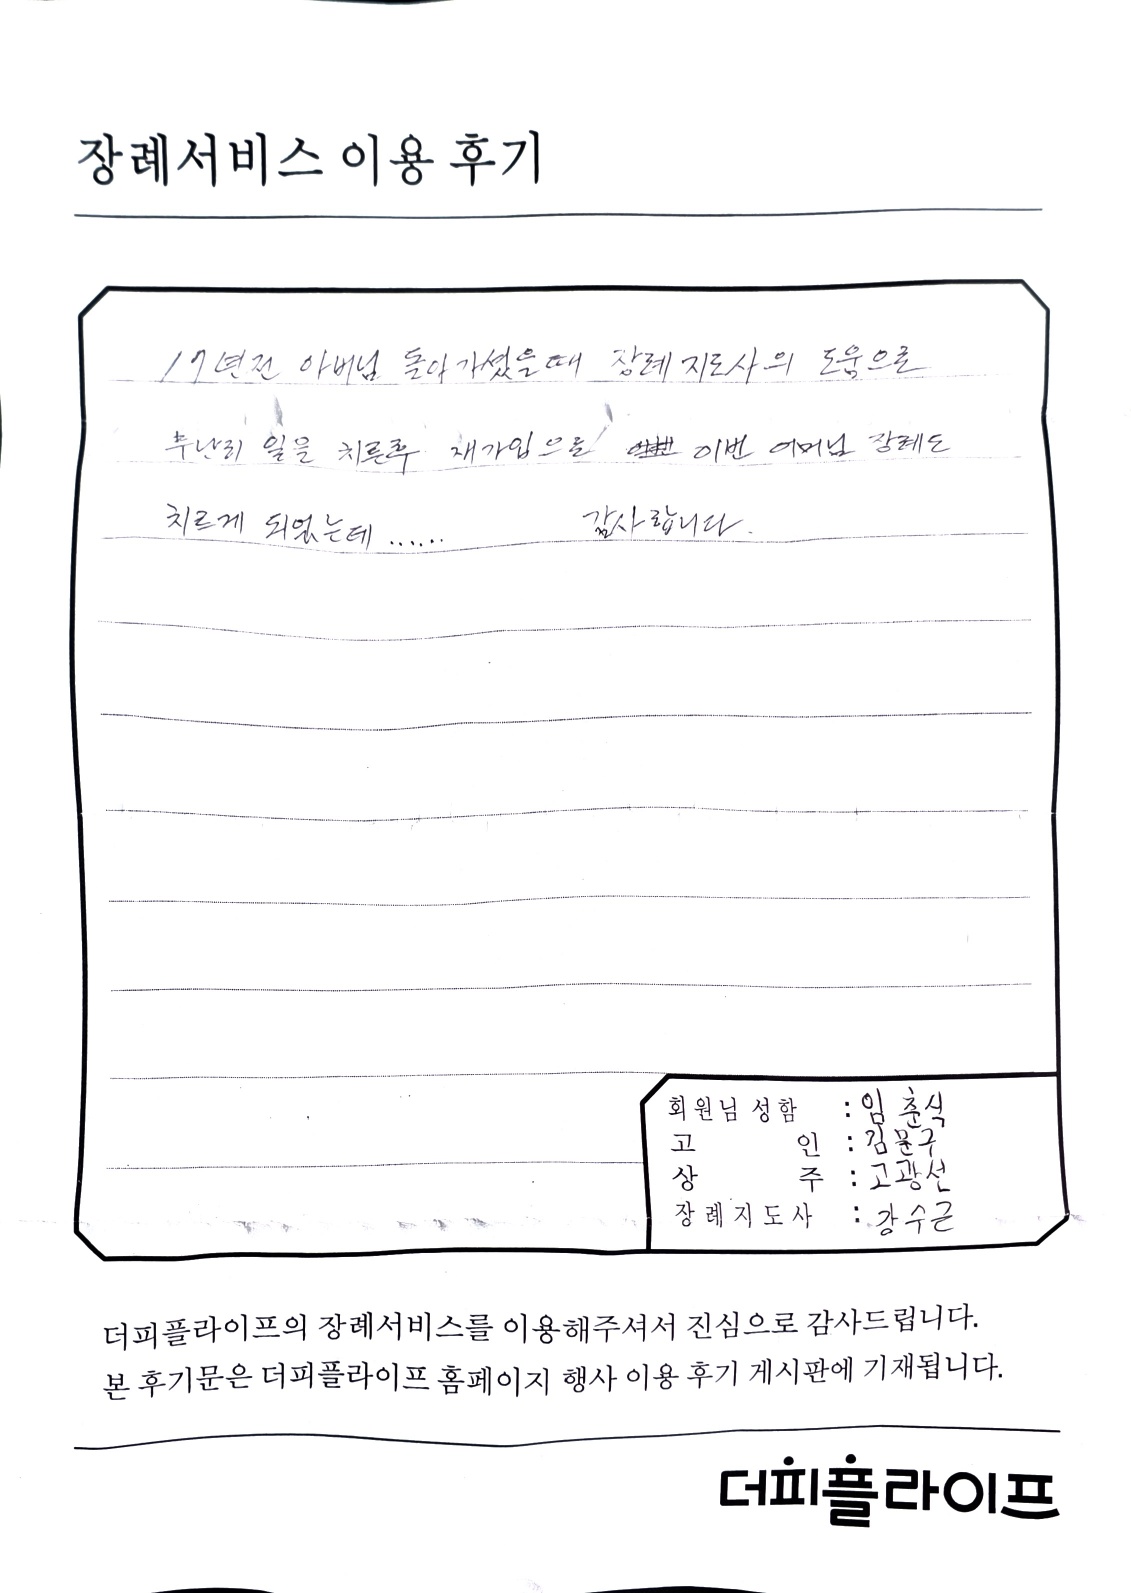 장례서비스 이용 후기
17년전 아버님 돌아가셨을때 장례지도사의 도움으로
무난히 일을 치른후 재가입으로 이번 어머님 장례도
치르게 되었는데 ...... 감사합니다.
회원님 성함 : 임춘식
고 인 : 김문구
상 주 : 고광선
장례지도사 : 강수근
더피플라이프의 장례서비스를 이용해주셔서 진심으로 감사드립니다.
본 후기문은 더피플라이프 홈페이지 행사 이용 후기 게시판에 기재됩니다.
더피플라이프